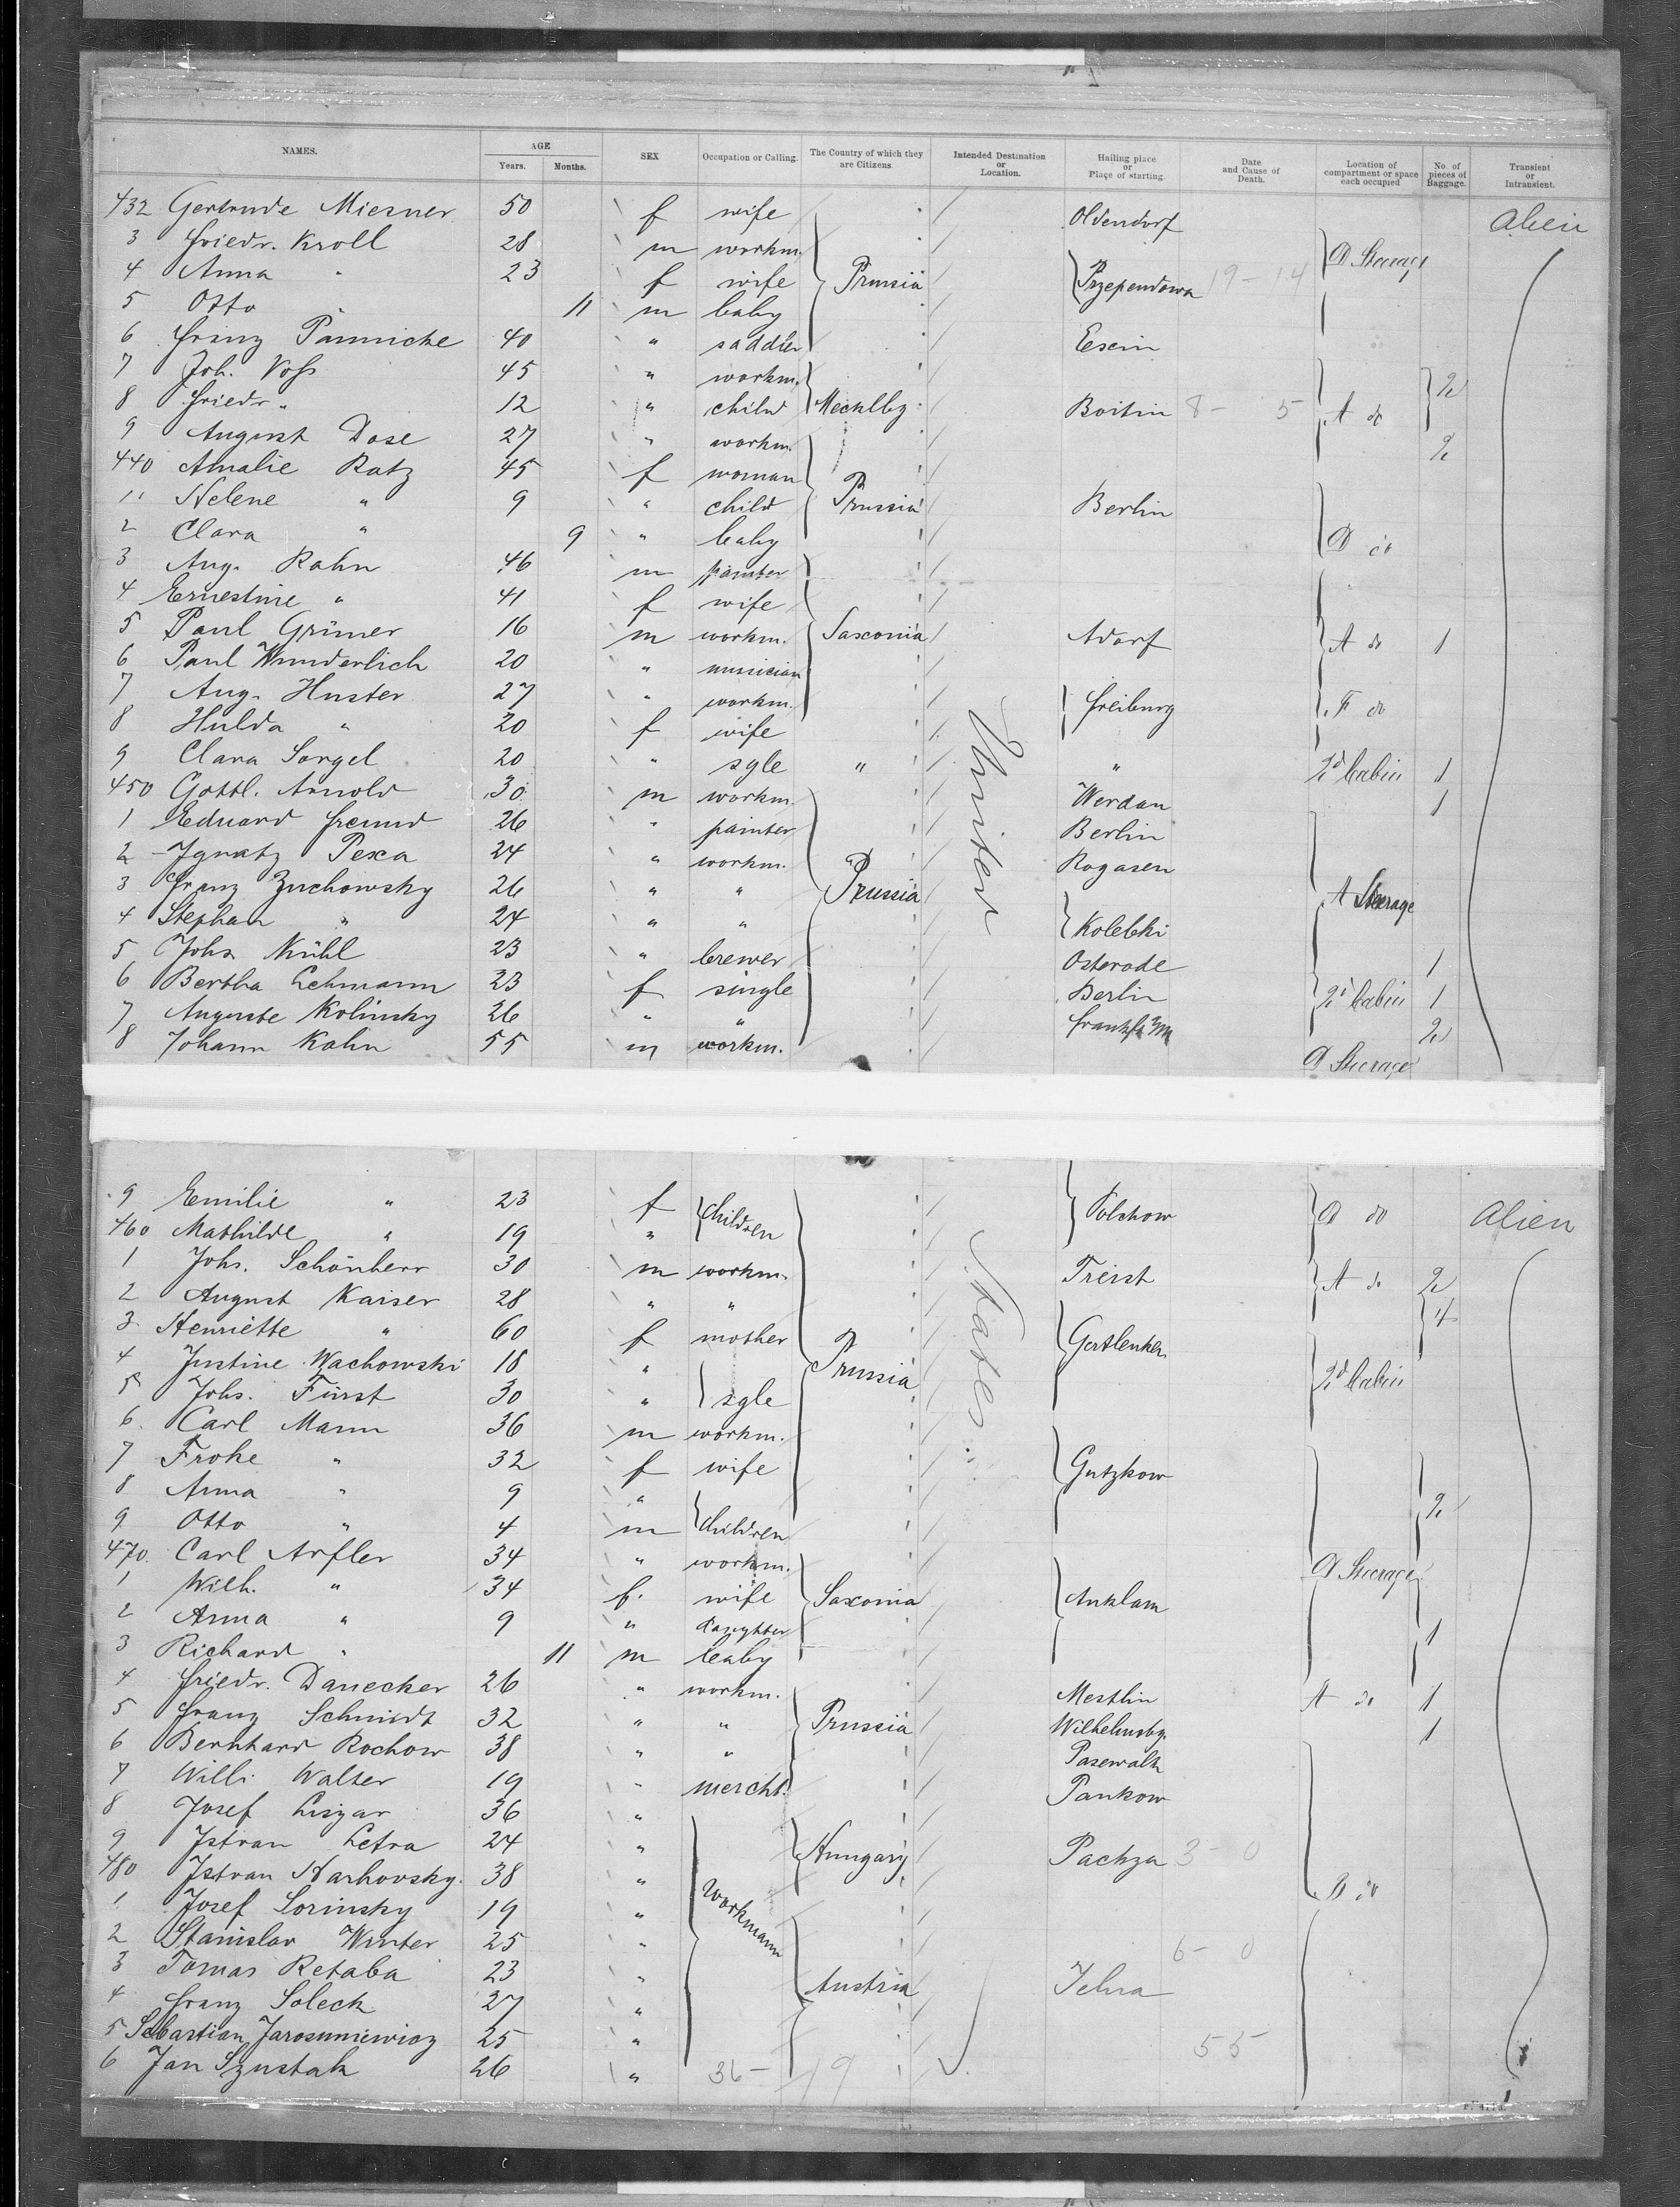 NAMES. AGE SEX Occupation or Calling. The Country of which they are Citizens. Intended Destination or Location. Hailing place or Place of starting. Date and Cause of Death. Location of compartment or space each occupied No. of pieces of Baggage. Transient or Intransient.
Years. Months.
432 Gertrude Miesner 50 f wife Oldendorf Alien
3 Friedr. Kroll 28 m workm. D Steerage
4 Anna " 23 f wife Prussia Przependowa 19-14
5 Otto " 11 m baby
6 Franz Pannicke 40 " saddler Exin
7 Joh. Voß 45 " workm. 2
8 Friedr. " 12 " child Mecklbg. Boitin 8- 5 A do
9 August Dose 27 " workm. 2
440 Amalie Ratz 45 f woman
11 Helene " 9 " child Prussia Berlin
2 Clara " 9 " baby D do
3 Aug. Rahn 46 m painter
4 Ernestine " 41 f wife
5 Paul Grüner 16 m workm. Saxonia Adorf A do 1
6 Paul Wunderlich 20 " musician
7 Aug. Huster 27 " workm. Freiburg F do
8 Hulda " 20 f wife
9 Clara Sorgel 20 " sgle " " 2d Cabin 1
450 Gottl. Arnold 30 m workm. Werdau 1
1 Eduard Freund 26 " painter Berlin
2 Ignatz Pexa 24 " workm. Rogasen
3 Franz Zuchowsky 26 " " Prussia United A Steerage
4 Stephan " 24 " " Kolebki
5 Johs Kühl 23 " brewer Osterode 1
6 Bertha Lehmann 23 f single Berlin 2d Cabin 1
7 Auguste Kolinsky 26 " " Frankft a/M 2
8 Johann Kahn 55 m workm. D Steerage
9 Emilie " 23 f children Polchow D do Alien
460 Mathilde " 19 "
1 Johs. Schönherr 30 m workm. Treist A do 2
2 August Kaiser 28 " " 4
3 Henriette " 60 f mother States
4 Justine Wachowski 18 " Prussia 2d Cabin
5 Johs. Fürst 30 " sgle
6 Carl Mann 36 m workm.
7 Froke " 32 f wife Gutzkow
8 Anna " 9 " 2
9 Otto " 4 m children
470. Carl Arfler 34 " workm. D Steerage
1 Wilh. " 34 f. wife Saxonia Anklam
2 Anna " 9 " daughter 1
3 Richard " 11 m baby
4 Friedr. Danecker 26 " workm. Mestlin A do 1
5 Franz Schmidt 32 " " Prussia Wilhelmsbg. 1
6 Bernhard Rochow 38 " " Pasewalk
7 Willi Walter 19 " mercht. Pankow
8 Josef Liszar 36 "
9 Istvan Letra 24 " Hungary Pachza 3- 0
480 Istvan Harhovsky 38 " D do
1 Josef Sorinsky 19 " Workmann
2 Stanislav Winter 25 " 6- 0
3 Tomas Retaba 23 " Austria Jelna
4 Franz Soleck 27 "
5 Sebastian 25 " 55
6 Jan Szustak 26 " 36- 19